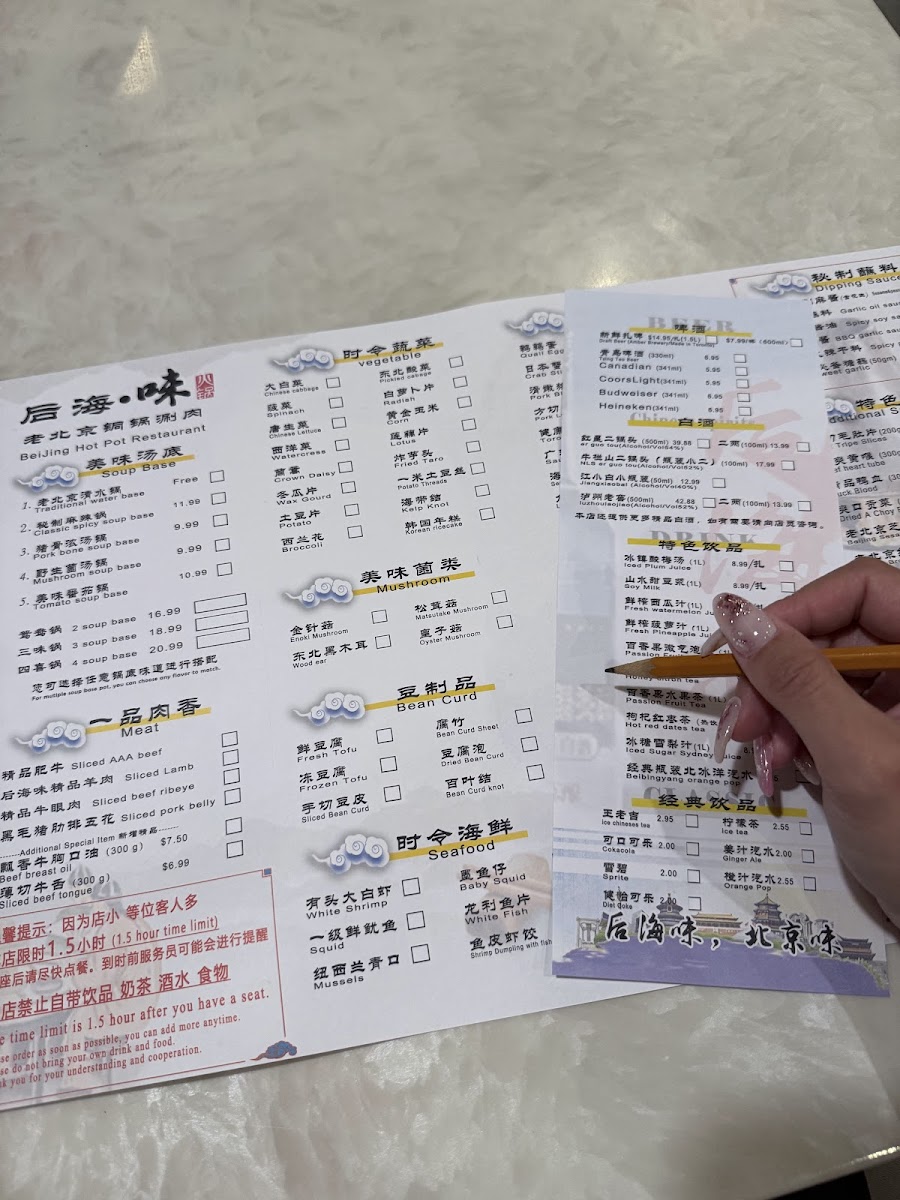 后海·味
火锅
老北京铜锅涮肉
BeiJing Hot Pot Restaurant
美味汤底
Soup Base
1. 老北京清水锅 Free
Traditional water base
2. 秘制麻辣锅 11.99
Classic spicy soup base
3. 猪骨浓汤锅 9.99
Pork bone soup base
4. 野生菌汤锅 9.99
Mushroom soup base
5. 美味番茄锅 10.99
Tomato soup base
鸳鸯锅 2 soup base 16.99
三味锅 3 soup base 18.99
四喜锅 4 soup base 20.99
您可选择任意锅底味道进行搭配
For multiple soup base pot, you can choose any flavor to match.
一品肉香
Meat
精品肥牛 Sliced AAA beef
后海味精品羊肉 Sliced Lamb
精品牛眼肉 Sliced beef ribeye
黑毛猪肋排五花 Sliced pork belly
------Additional Special Item 新增精品-----
飘香牛胸口油 (300 g) $7.50
Beef breast oil
薄切牛舌 (300 g) $6.99
Sliced beef tongue
馨提示: 因为店小 等位客人多
店限时1.5小时 (1.5 hour time limit)
座后请尽快点餐。到时前服务员可能会进行提醒
店禁止自带饮品 奶茶 酒水 食物
time limit is 1.5 hour after you have a seat.
order as soon as possible, you can add more anytime.
do not bring your own drink and food.
you for your understanding and cooperation.
时令蔬菜
vegetable
大白菜
Chinese cabbage
菠菜
Spinach
唐生菜
Chinese Lettuce
西洋菜
Watercress
茼蒿
Crown Daisy
冬瓜片
Wax Gourd
土豆片
Potato
西兰花
Broccoli
东北酸菜
Pickled cabage
白萝卜片
Radish
黄金玉米
Corn
莲藕片
Lotus
炸芋头
Fried Taro
一米土豆丝
Potato Threads
海带结
Kelp Knot
韩国年糕
Korean ricecake
美味菌类
Mushroom
金针菇
Enoki Mushroom
东北黑木耳
Wood ear
松茸菇
Matsutake Mushroom
皇子菇
Oyster Mushroom
豆制品
Bean Curd
鲜豆腐
Fresh Tofu
冻豆腐
Frozen Tofu
手切豆皮
Sliced Bean Curd
腐竹
Bean Curd Sheet
豆腐泡
Dried Bean Curd
百叶结
Bean Curd knot
时令海鲜
Seafood
有头大白虾
White Shrimp
一级鲜鱿鱼
Squid
纽西兰青口
Mussels
墨鱼仔
Baby Squid
龙利鱼片
White Fish
鱼皮虾饺
Shrimp Dumpling with fish
鹌鹑蛋
Quail Egg
日本蟹
Crab Sti
BEER
啤酒
新鲜扎啤 $14.95/扎(1.9L) $7.99/杯 (600ml)
Draft Beer (Amber Brewery/Made in Toronto)
青岛啤酒 (330ml) 6.95
Tsing Tao Beer
Canadian (341ml) 5.95
CoorsLight(341ml) 5.95
Budweiser (341ml) 5.95
Heineken(341ml) 6.95
白酒
红星二锅头 (500ml) 39.88 二两(100ml) 13.99
er guo tou(Alcohol/Vol48%)
牛栏山二锅头 (瓶装小二) (100ml) 17.99
NLS er guo tou(Alcohol/Vol52%)
江小白小瓶装(50ml) 12.99
jiangxiaobai (Alcohol/Vol40%)
泸州老窖(500ml) 42.88 二两(100ml) 13.99
luzhoulaojiao(Alcohol/Vol52%)
本店还提供更多精品白酒，如有需要请向店员咨询。
DRINK
特色饮品
冰镇酸梅汤 (1L) 8.99/扎
Iced Plum Juice
山水甜豆浆(1L) 8.99/扎
Soy Milk
鲜榨西瓜汁(1L)
Fresh watermelon Ju
鲜榨菠萝汁 (1L)
Fresh Pineapple Jui
百香果激气泡
Passion Frui
百香果水果茶 (1L)
Passion Fruit Tea
枸杞红枣茶 (热饮
Hot red dates tea
冰糖雪梨汁(1L)
Iced Sugar Sydney Juice
经典瓶装北冰洋汽水
Beibingyang orange pop
CLASSIC
经典饮品
王老吉 2.95
Ice chineses tea
可口可乐 2.00
Cokacola
雪碧 2.00
Sprite
健怡可乐 2.00
Diet Coke
柠檬茶 2.55
Ice tea
姜汁汽水 2.00
Ginger Ale
橙汁汽水 2.55
Orange Pop
后海味，北京味
秘制蘸料
Dipping Sauce
Garlic oil sauc
Spicy soy sa
BBQ garlic sauc
Spicy
(50gm)
sweet garlic
特色
ditional S
毛肚片(200g
Tripe Slices
heart tube
鸭血
Duck Blood
Dried A Choy
老北京芝
Beijing Sesa